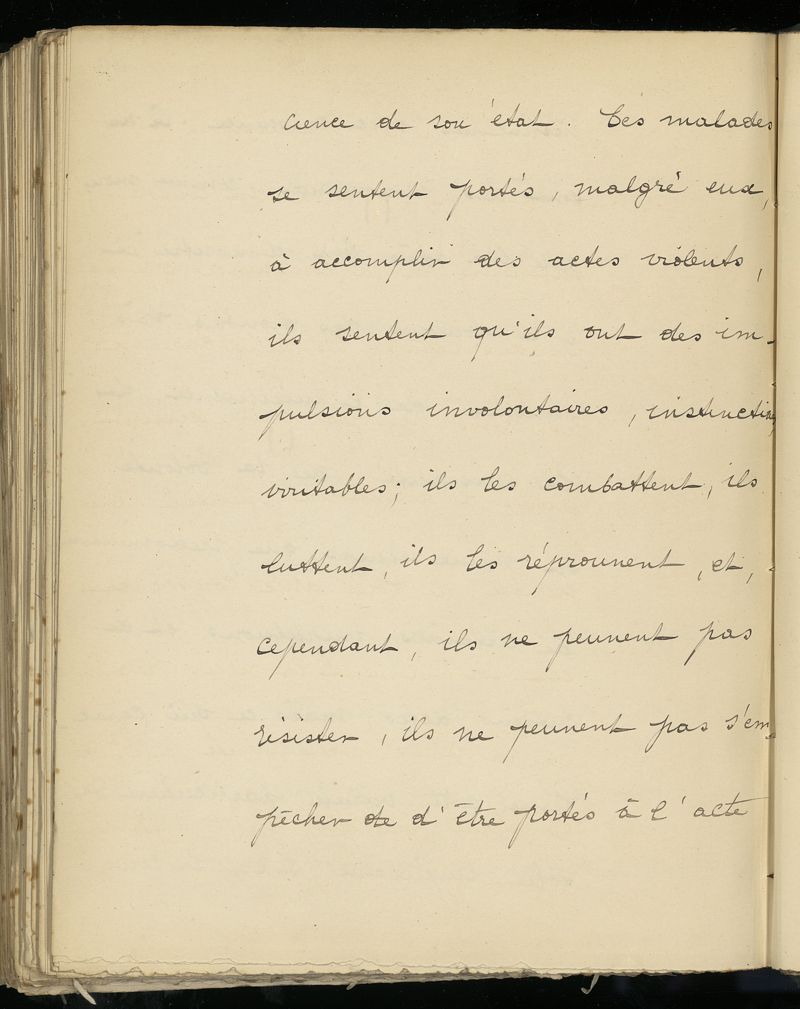 cience de son état. Ces malades
se sentent portés, malgré eux,
à accomplir des actes violents,
ils sentent qu'ils ont des im-
pulsions involontaires, instinctives,
véritables; ils les combattent, ils
luttent, ils les réprouvent, et,
cependant, ils ne peuvent pas
résister, ils ne peuvent pas s'em-
pêcher de d'être portés à l'acte